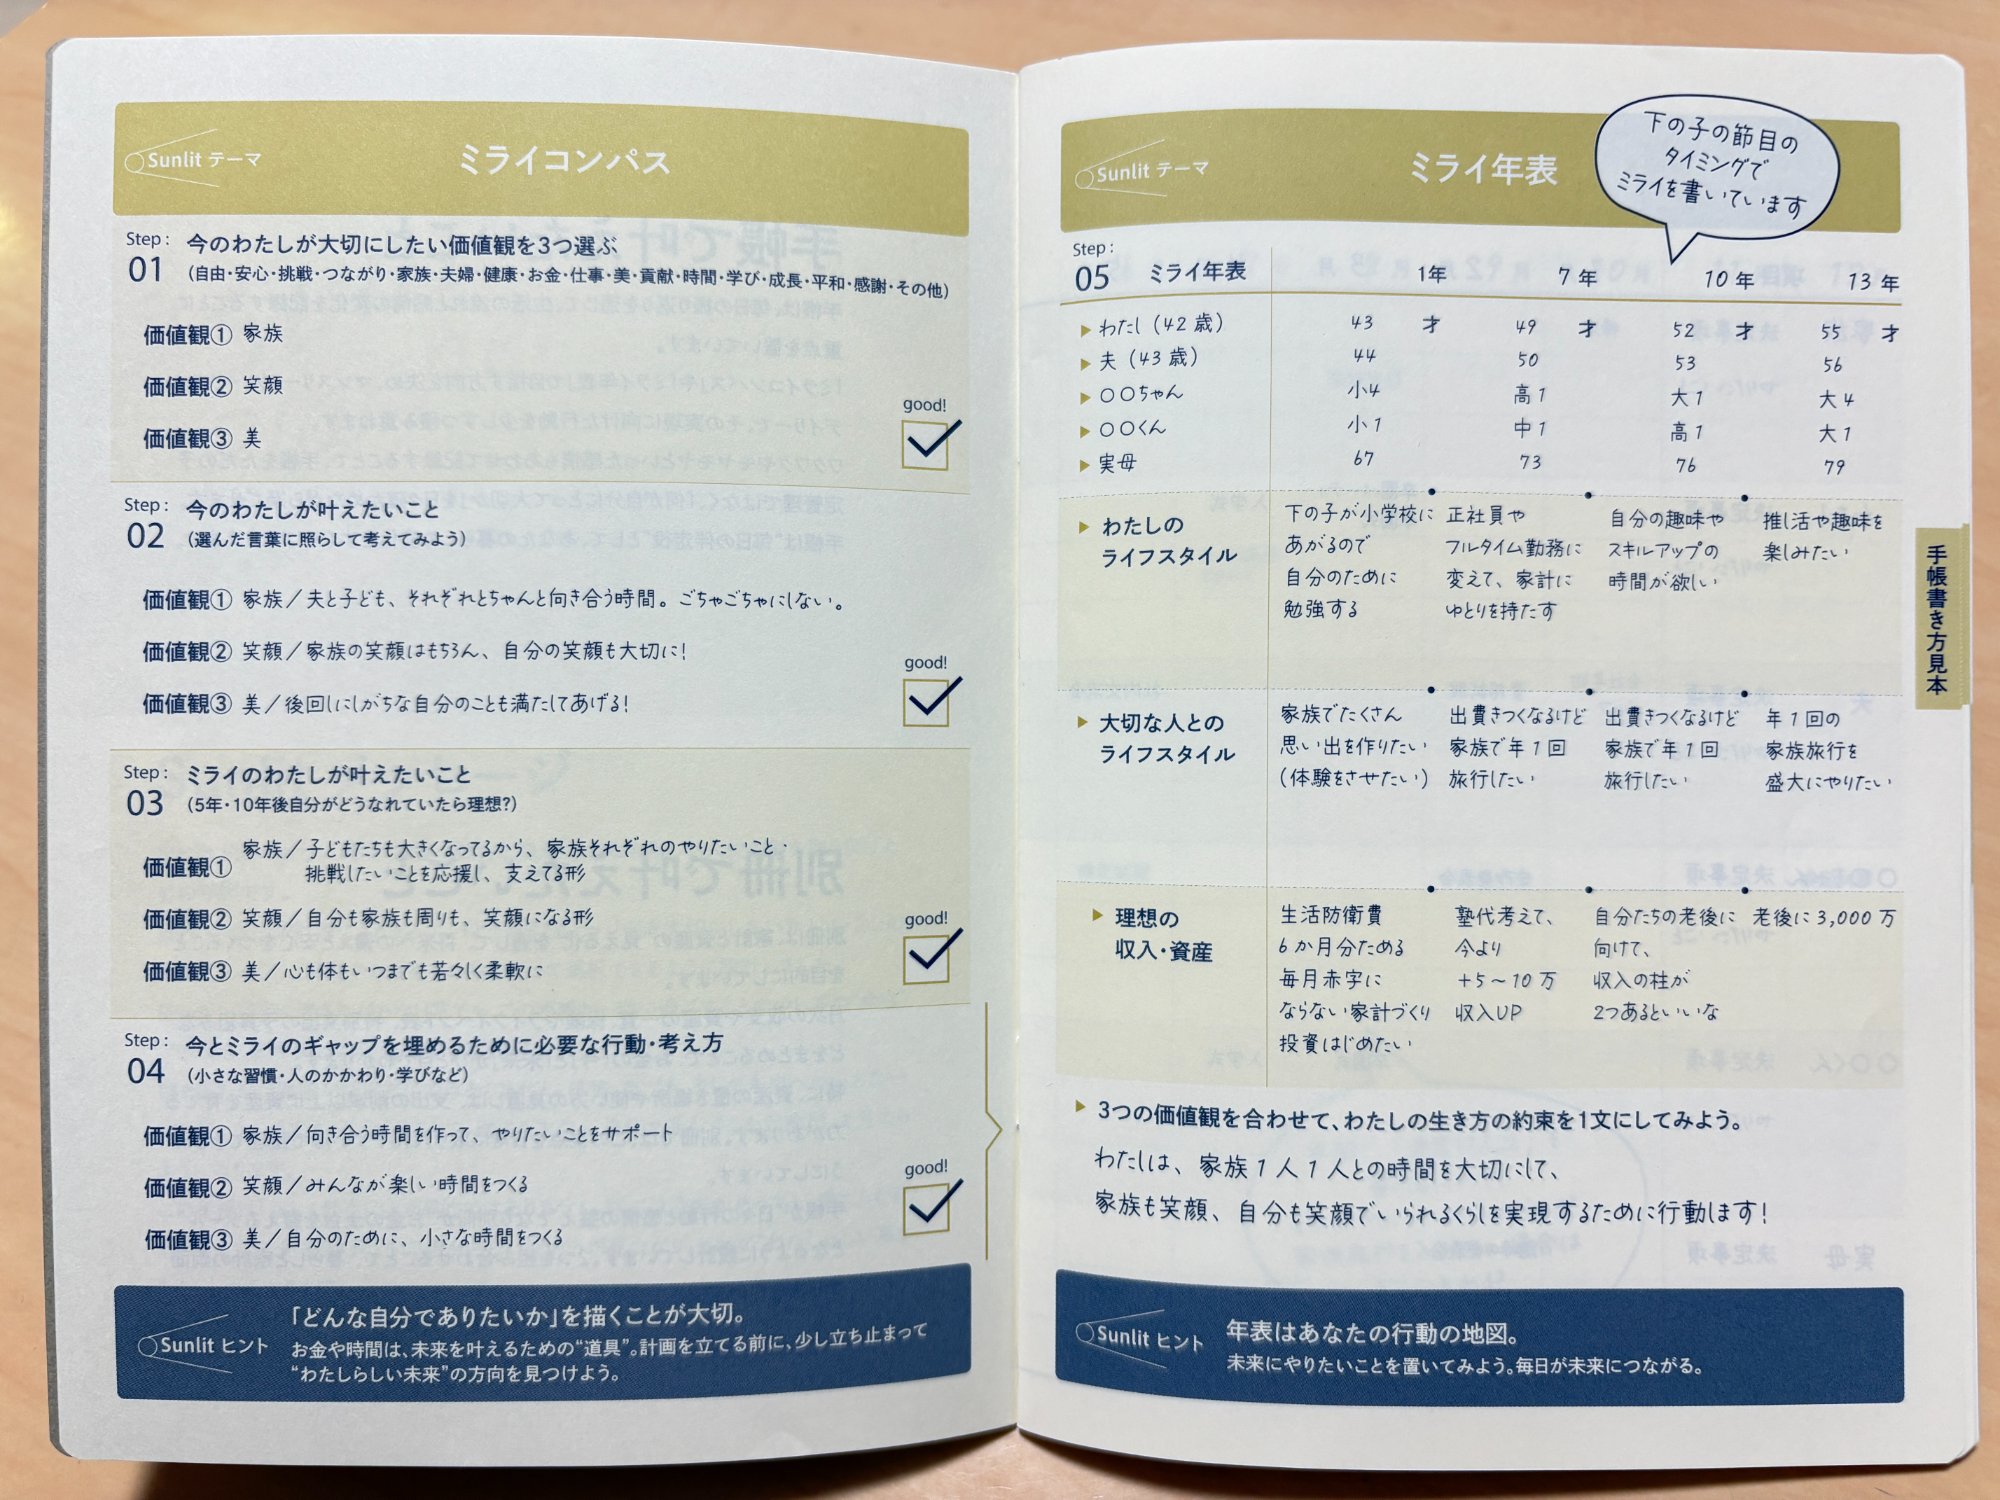 Sunlit テーマ
ミライコンパス
Step:
01
今のわたしが大切にしたい価値観を3つ選ぶ
(自由・安心・挑戦・つながり・家族・夫婦・健康・お金・仕事・美・貢献・時間・学び・成長・平和・感謝・その他)
価値観① 家族
価値観② 笑顔
価値観③ 美
good!
Step:
02
今のわたしが叶えたいこと
(選んだ言葉に照らして考えてみよう)
価値観① 家族/夫と子ども、それぞれとちゃんと向き合う時間。ごちゃごちゃにしない。
価値観② 笑顔/家族の笑顔はもちろん、自分の笑顔も大切に!
価値観③ 美/後回しにしがちな自分のことも満たしてあげる!
good!
Step:
03
ミライのわたしが叶えたいこと
(5年・10年後自分がどうなれていたら理想?)
価値観① 家族/子どもたちも大きくなってるから、家族それぞれのやりたいこと・
挑戦したいことを応援し、支えてる形
価値観② 笑顔/自分も家族も周りも、笑顔になる形
価値観③ 美/心も体もいつまでも若々しく柔軟に
good!
Step:
04
今とミライのギャップを埋めるために必要な行動・考え方
(小さな習慣・人のかかわり・学びなど)
価値観① 家族/向き合う時間を作って、やりたいことをサポート
価値観② 笑顔/みんなが楽しい時間をつくる
価値観③ 美/自分のために、小さな時間をつくる
good!
Sunlit ヒント
「どんな自分でありたいか」を描くことが大切。
お金や時間は、未来を叶えるための“道具”。計画を立てる前に、少し立ち止まって
“わたしらしい未来”の方向を見つけよう。
Sunlit テーマ
ミライ年表
下の子の節目の
タイミングで
ミライを書いています
Step:
05
ミライ年表 1年 7年 10年 13年
わたし(42歳) 43 才 49 才 52 才 55 才
夫(43歳) 44 50 53 56
○○ちゃん 小4 高1 大1 大4
○○くん 小1 中1 高1 大1
実母 67 73 76 79
わたしの
ライフスタイル
下の子が小学校に
あがるので
自分のために
勉強する
正社員や
フルタイム勤務に
変えて、家計に
ゆとりを持たす
自分の趣味や
スキルアップの
時間が欲しい
推し活や趣味を
楽しみたい
大切な人との
ライフスタイル
家族でたくさん
思い出を作りたい
(体験をさせたい)
出費きつくなるけど
家族で年1回
旅行したい
出費きつくなるけど
家族で年1回
旅行したい
年1回の
家族旅行を
盛大にやりたい
理想の
収入・資産
生活防衛費
6か月分ためる
毎月赤字に
ならない家計づくり
投資はじめたい
塾代考えて、
今より
+5~10万
収入UP
自分たちの老後に
向けて、
収入の柱が
2つあるといいな
老後に3,000万
3つの価値観を合わせて、わたしの生き方の約束を1文にしてみよう。
わたしは、家族1人1人との時間を大切にして、
家族も笑顔、自分も笑顔でいられるくらしを実現するために行動します!
Sunlit ヒント
年表はあなたの行動の地図。
未来にやりたいことを置いてみよう。毎日が未来につながる。
手帳書き方見本